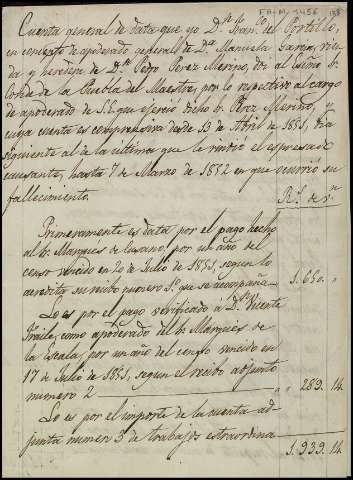 FA-M. 3456
Cuenta general de data que yo Dn. Franco. del Portillo,
en concepto de apoderado general de Da. Manuela Garcia, viu-
da y heredera de Dn. Pedro Perez Merino, doi al Exmo. Sr.
Conde de la Puebla del Maestre, por lo respectivo al cargo
de apoderado de S.E. que ejerció dicho Sr. Perez Merino, y
cuya cuenta es comprensiva desde 13 de Abril de 1851, dia
siguiente al de la última que le rindió el espresado
causante, hasta 7 de Marzo de 1852 en que ocurrió su
fallecimiento.
Rs. de vn.
Primeramente es data por el pago hecho
al Sr. Marqués de por un año del
censo vencido en 20 de Julio de 1851, segun lo
acredita su recibo numero 1º que se acompaña 1.650. "
Lo es por el pago verificado á Dn. Vicente
Fraile, como apoderado del Sr. Marqués de
la Escala, por un año del censo vencido en
17 de Julio de 1851, segun el recibo adjunto
numero 2 " " 289. 14.
Lo es por el importe de la cuenta ad-
junta numero 3 de trabajos estraordina
1.939. 14